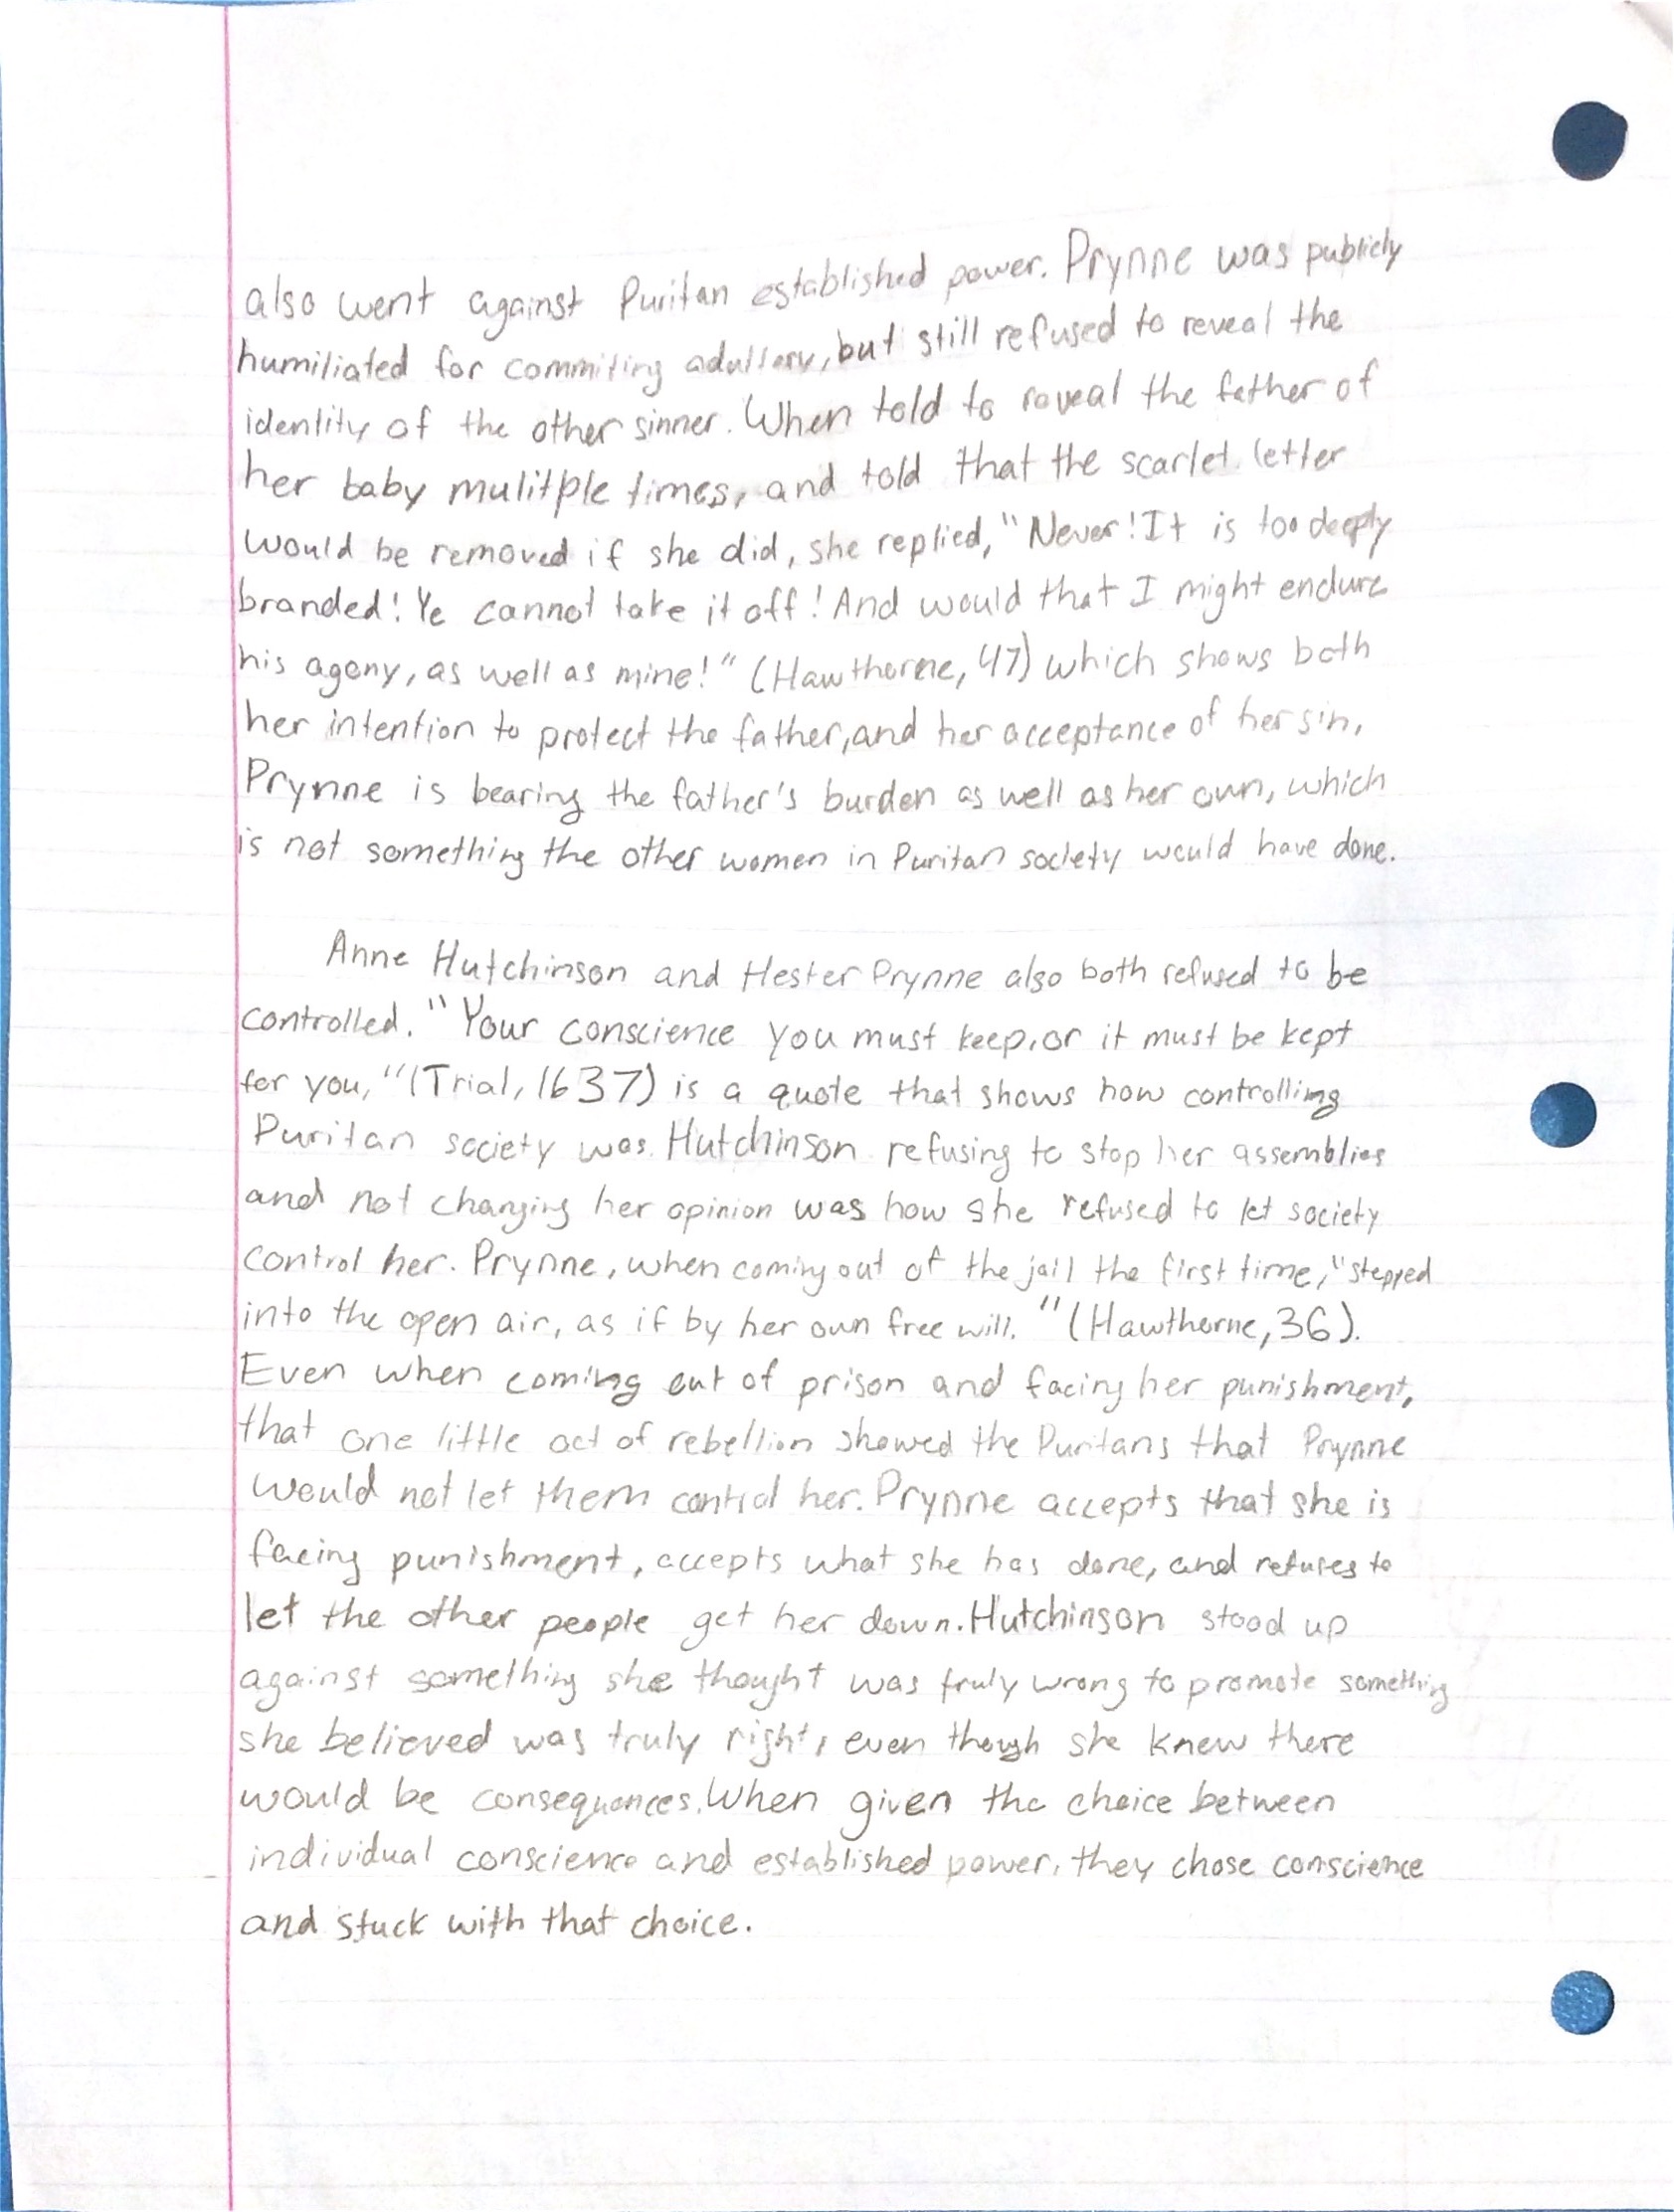 also went against Puritan established power. Prynne was publicly
humiliated for commiting adultery, but still refused to reveal the
identity of the other sinner. When told to reveal the father of
her baby mulitple times, and told that the scarlet letter
would be removed if she did, she replied, "Never! It is too deeply
branded! Ye cannot take it off! And would that I might endure
his agony, as well as mine!" (Hawthorne, 47) which shows both
her intention to protect the father, and her acceptance of her sin,
Prynne is bearing the father's burden as well as her own, which
is not something the other women in Puritan society would have done.
Anne Hutchinson and Hester Prynne also both refused to be
controlled. "Your conscience you must keep, or it must be kept
for you," (Trial, 1637) is a quote that shows how controlling
Puritan society was. Hutchinson refusing to stop her assemblies
and not changing her opinion was how she refused to let society
control her. Prynne, when coming out of the jail the first time, "stepped
into the open air, as if by her own free will." (Hawthorne, 36).
Even when coming out of prison and facing her punishment,
that one little act of rebellion showed the Puritans that Prynne
would not let them control her. Prynne accepts that she is
facing punishment, accepts what she has done, and refuses to
let the other people get her down. Hutchinson stood up
against something she thought was truly wrong to promote something
she believed was truly right, even though she knew there
would be consequences. When given the choice between
individual conscience and established power, they chose conscience
and stuck with that choice.